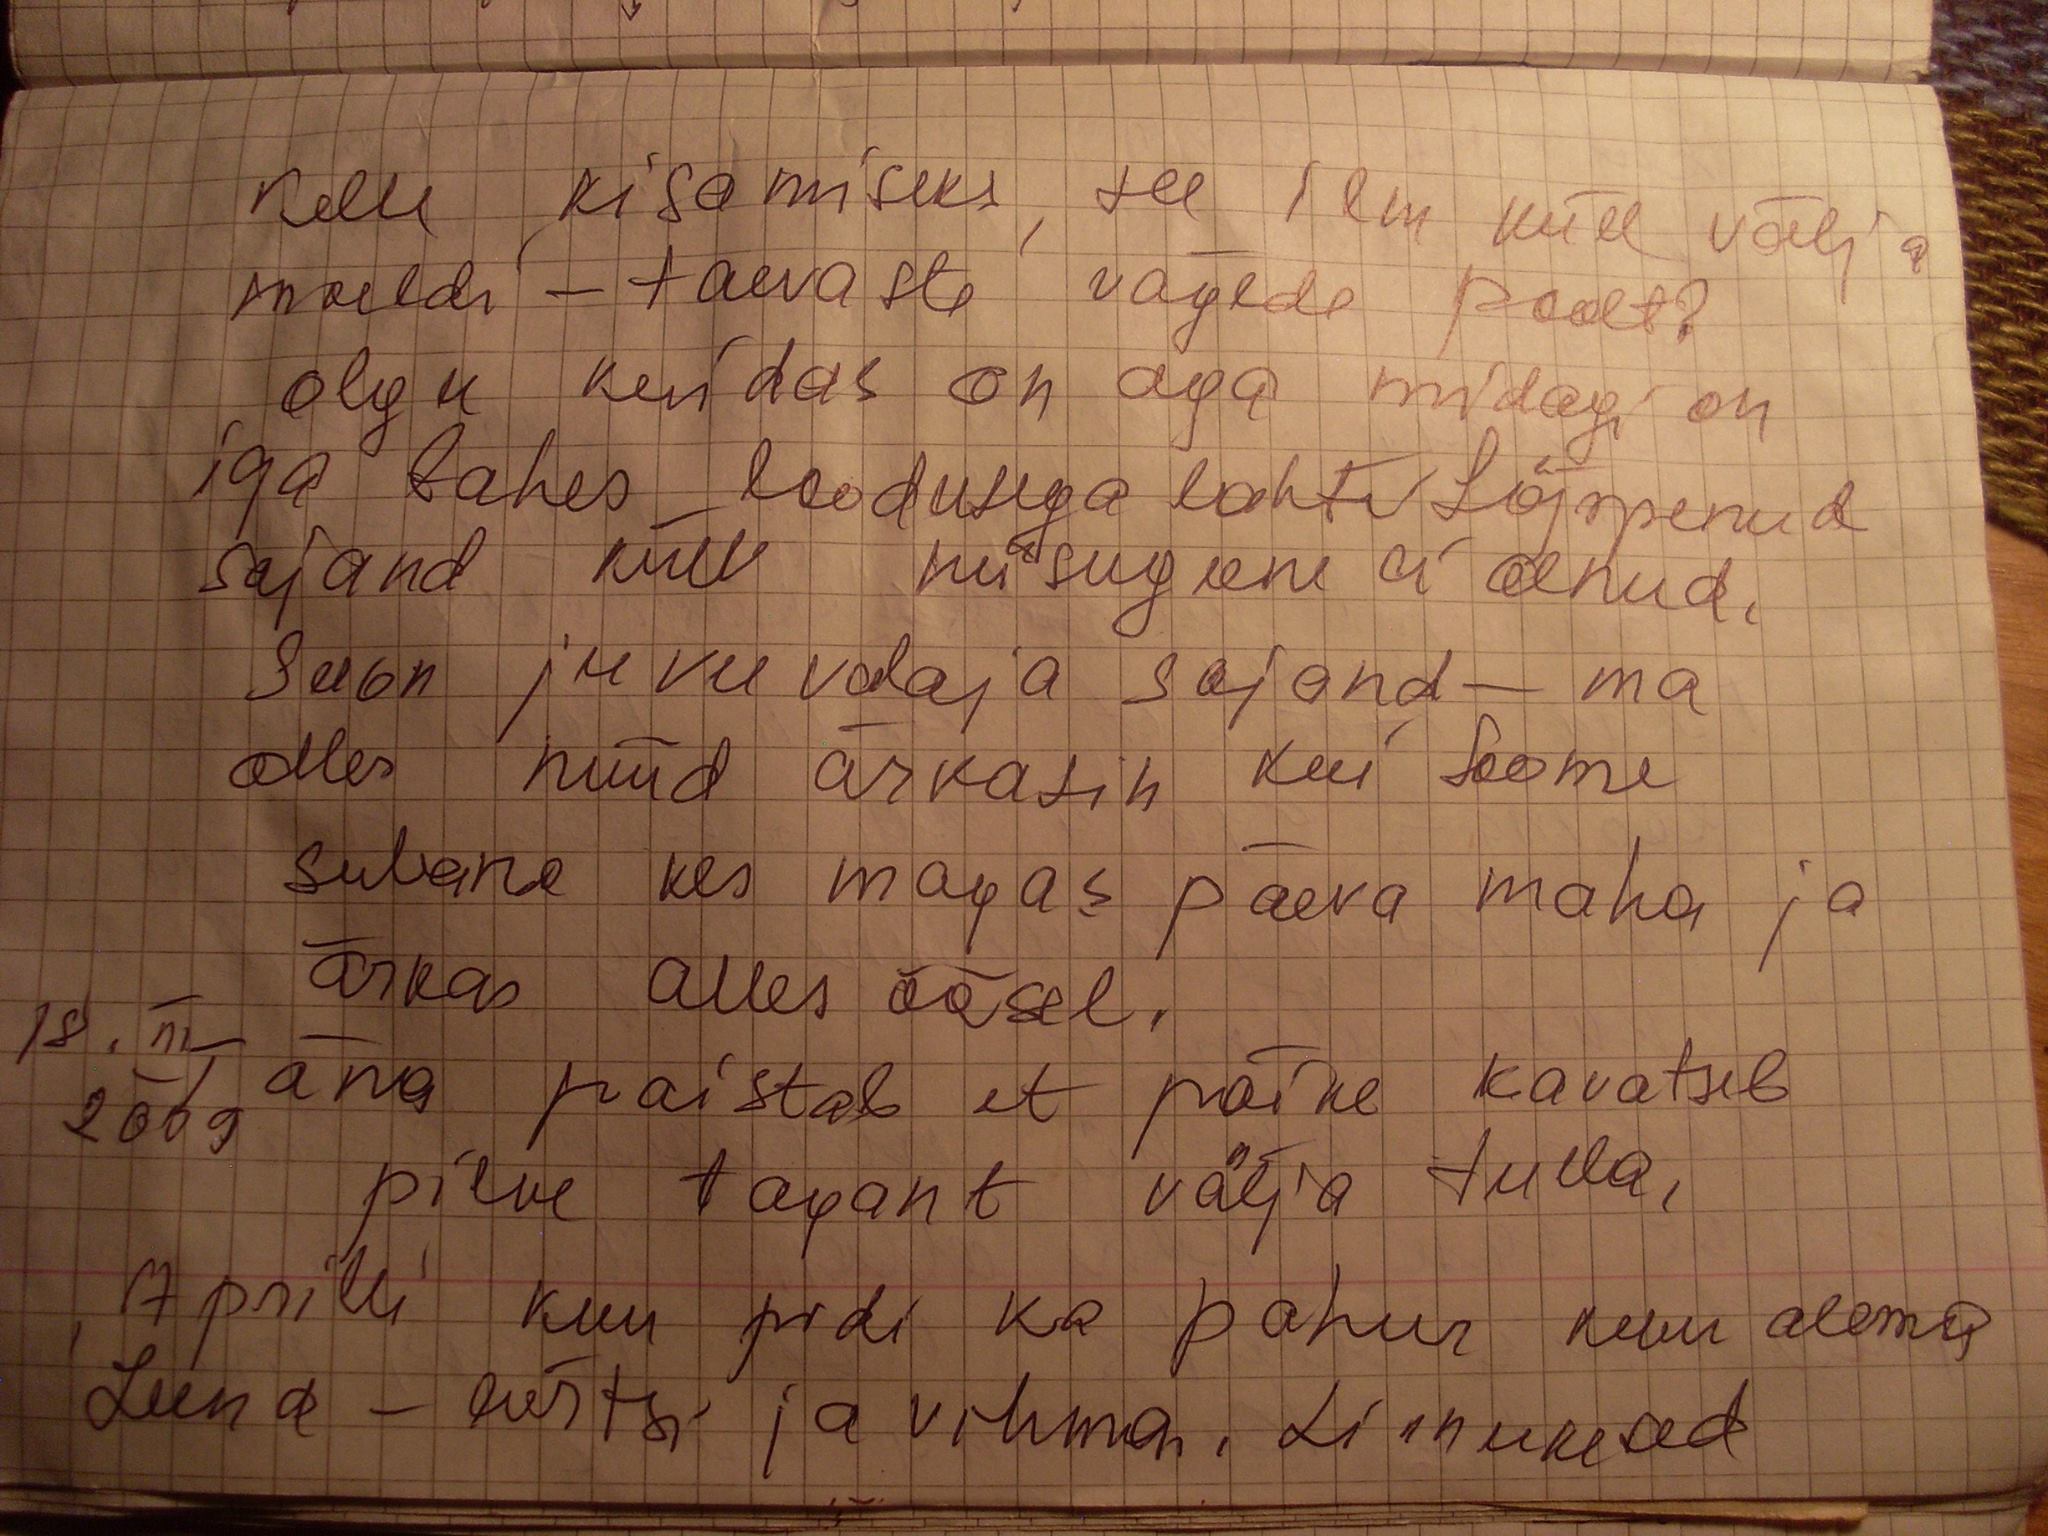 Kelle kisamiseks, see ilm küll välja
moeldi – taevaste vägede poolt?
olgu kuidas on aga midagi on
iga tahes loodusega lahti
sajand küll niisugune ei olnud.
See on ju veevalaja sajand – ma
alles nüüd ärkasin kui Soome
sulane kes magas päeva maha ja
ärkas alles öösel.
18. III
2009
äna paistab et päike kavatseb
pilve tagant välja tulla,
Aprilli kuu pidi ka pahur kuu olema
Lund – lörtsi ja vihma. Linnukesed